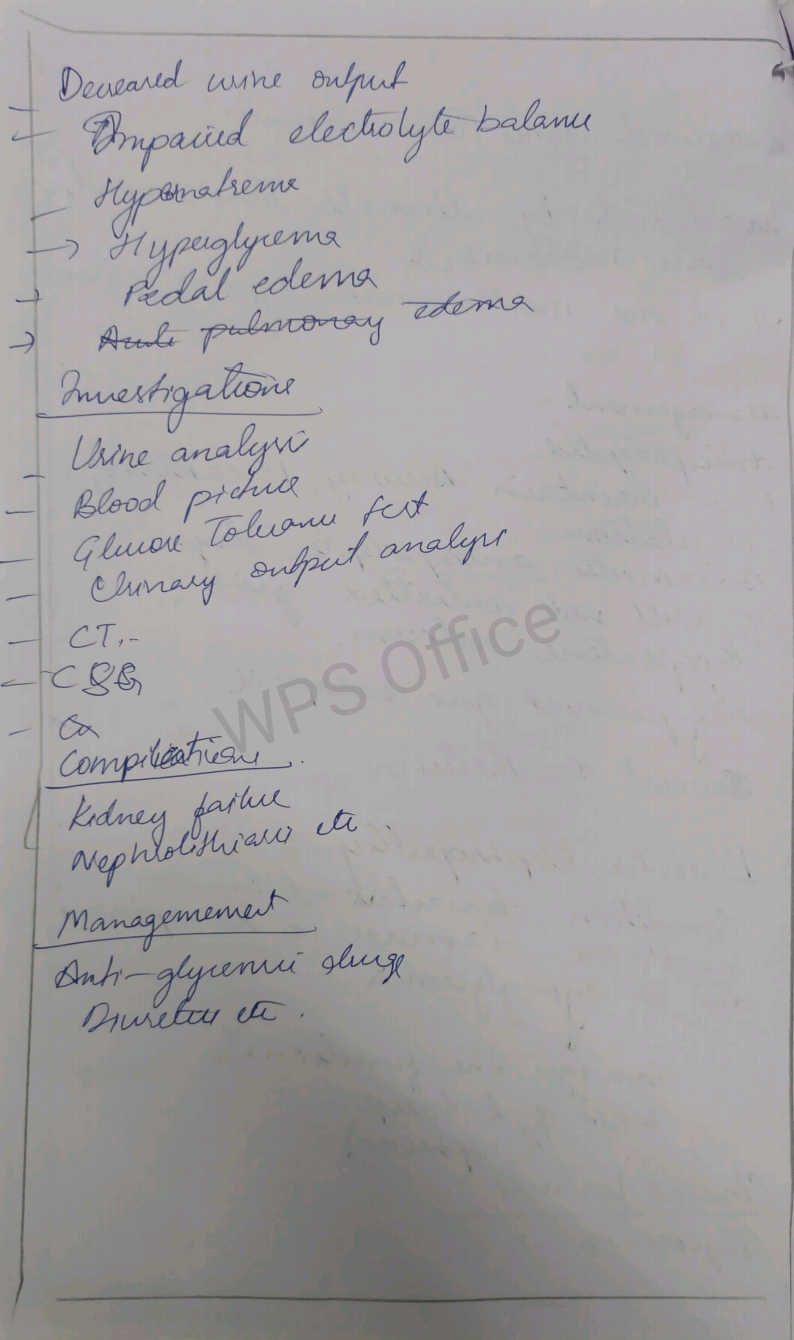 Decreased urine output
Impaired electrolyte balance
Hyponatremia
→ Hyperglycemia
Pedal edema
→ Acute pulmonary edema
Investigations
Urine analysis
Blood picture
Glucose Tolerance test
Urinary output analysis
CT.-
Complications
Kidney failure
Nephrolithiasis etc
Managemement
Anti-glycemic drugs
Diuretics etc.
WPS Office